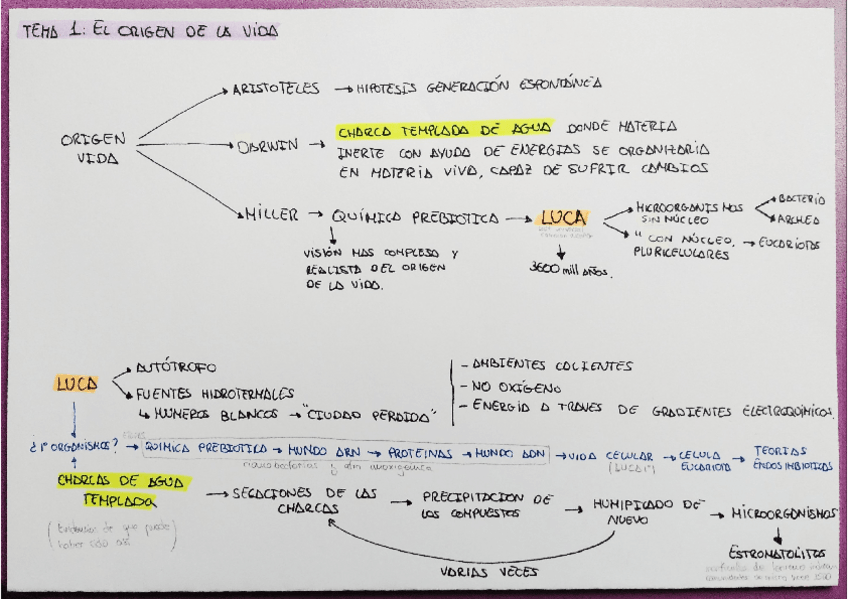 TEMA 1: EL ORIGEN DE LA VIDA
ORIGEN
VIDA
ARISTOTELES → HIPOTESIS GENERACIÓN ESPONTÁNEA
DARWIN → CHARCA TEMPLADA DE AGUA DONDE MATERIA
INERTE CON AYUDA DE ENERGIAS SE ORGANIZARIA
EN MATERIA VIVA, CAPAZ DE SUFRIR CAMBIOS
MILLER → QUÍMICA PREBIOTICA → LUCA
VISIÓN MAS COMPLEJA Y
REALISTA DEL ORIGEN
DE LA VIDA.
3600 mill AÑOS.
MICROORGANISMOS
SIN NÚCLEO
BACTERIA
ARCHEA
" CON NÚCLEO, → EUCARIOTAS
PLURICELULARES
LUCA
AUTÓTROFO
FUENTES HIDROTERMALES
↳ HUMEROS BLANCOS → "CIUDAD PERDIDA"
- AMBIENTES CALIENTES
- NO OXÍGENO
- ENERGÍA A TRAVES DE GRADIENTES ELECTROQUÍMICOS.
¿1º ORGANISMOS? → QUIMICA PREBIOTICA → MUNDO ARN → PROTEINAS → MUNDO ADN → VIDA CELULAR → CELULA
EUCARIOTA → TEORIAS
ENDOSIMBIOTICAS
(LUCA)
CHARCAS DE AGUA
TEMPLADA
→ SECACIONES DE LAS
CHARCAS
→ PRECIPITACION DE
LOS COMPUESTOS
→ HUMIFICADO DE
NUEVO
→ MICROORGANISMOS
VARIAS VECES
ESTROMATOLITOS
de que puede
haber sido